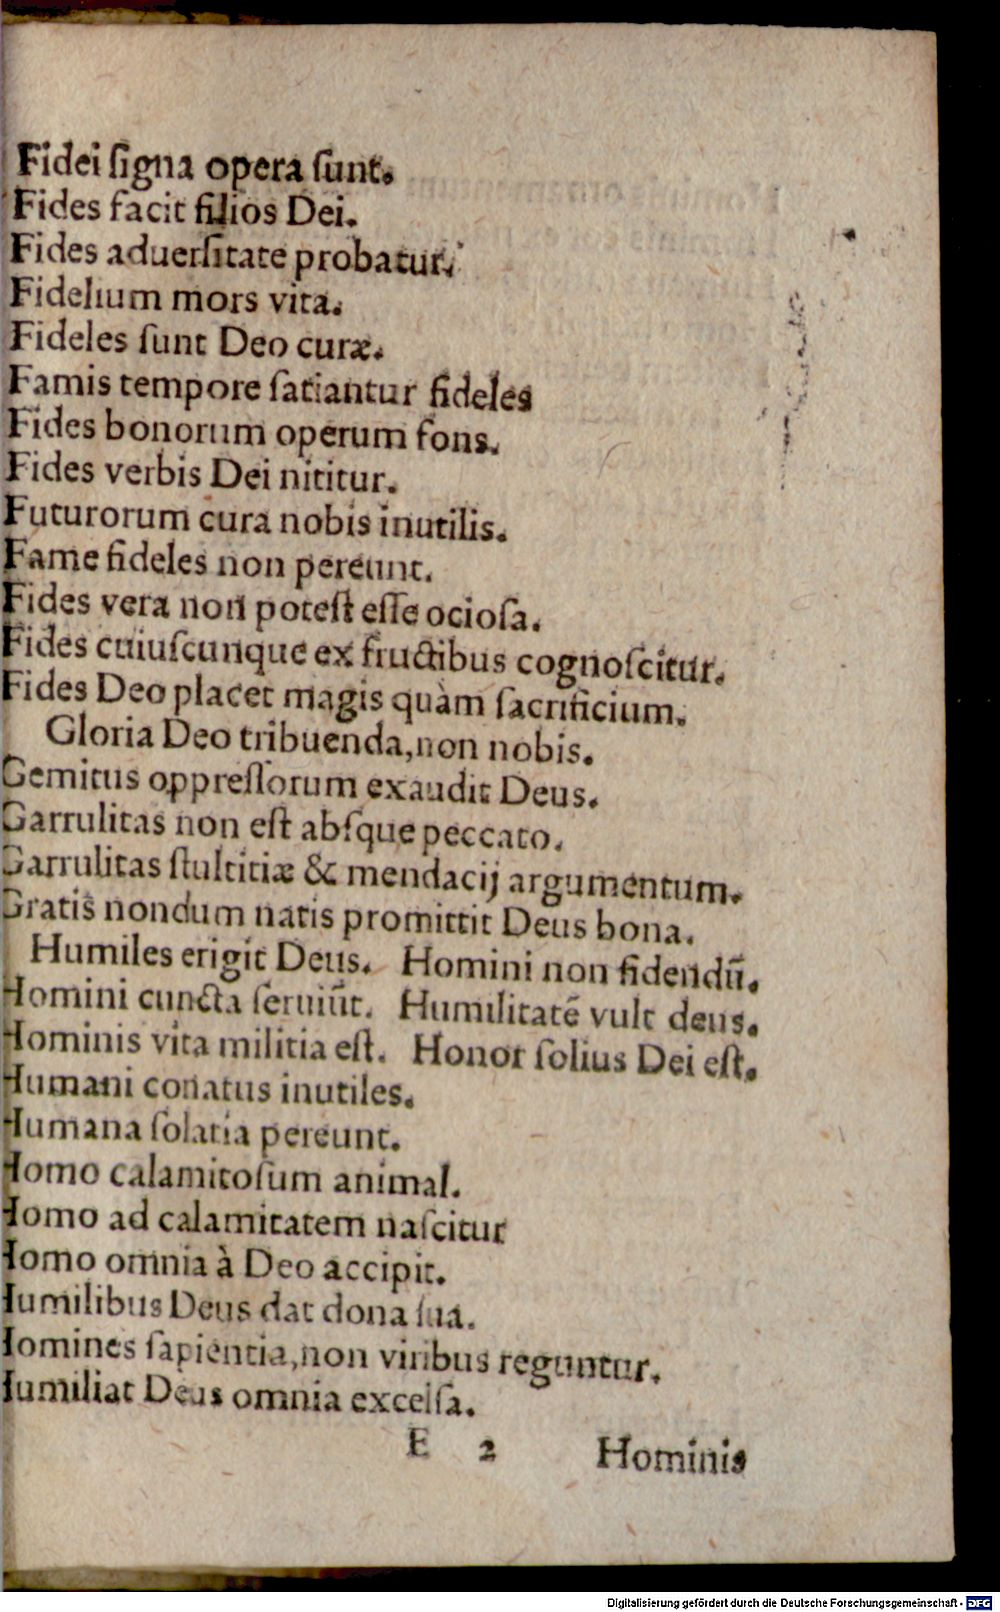 Fidei ſigna opera ſunt.
Fides facit filios Dei.
Fides aduerſitate probatur.
Fidelium mors vita.
Fideles ſunt Deo curæ.
Famis tempore ſatiantur fideles
Fides bonorum operum fons.
Fides verbis Dei nititur.
Futurorum cura nobis inutilis.
Fame fideles non pereunt.
Fides vera non poteſt eſſe ocioſa.
Fides cuiuſcunque ex fructibus cognoſcitur.
Fides Deo placet magis quàm ſacrificium.
Gloria Deo tribuenda, non nobis.
Gemitus oppreſſorum exaudit Deus.
Garrulitas non eſt abſque peccato.
Garrulitas ſtultitiæ & mendacij argumentum.
Gratis nondum natis promittit Deus bona.
Humiles erigit Deus. Homini non fidendū.
Homini cuncta ſeruiūt. Humilitatē vult deus.
Hominis vita militia eſt. Honor ſolius Dei eſt.
Humani conatus inutiles.
Humana ſolatia pereunt.
Homo calamitoſum animal.
Homo ad calamitatem naſcitur
Homo omnia à Deo accipit.
Humilibus Deus dat dona ſua.
Homines ſapientia, non viribus reguntur.
Humiliat Deus omnia excelſa.
E 2 Hominis
Digitalisierung gefördert durch die Deutsche Forschungsgemeinschaft - DFG